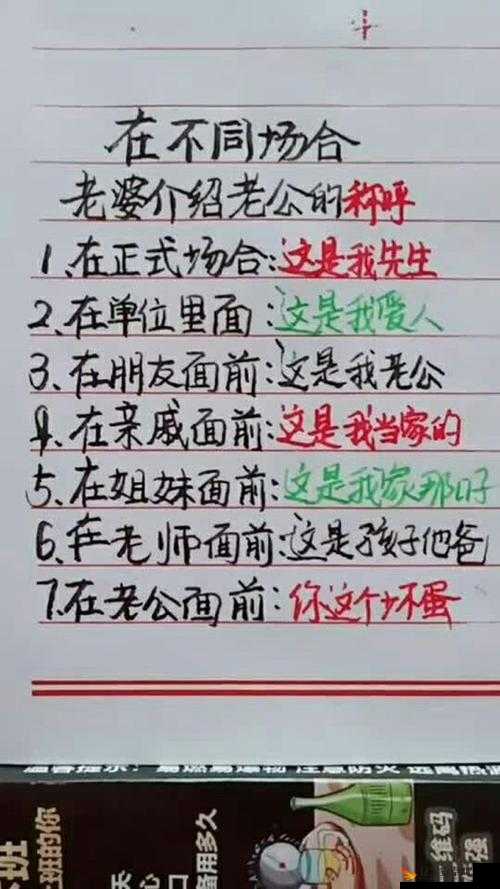 在不同场合
老婆介绍老公的称呼
1、在正式场合:这是我先生
2、在单位里面:这是我爱人
3、在朋友面前:这是我老公
4、在亲戚面前:这是我当家的
5、在姐妹面前:这是我家那口子
6、在老师面前:这是孩子他爸
7、在老公面前:你这个坏蛋
班的你
备用多久
维码
强